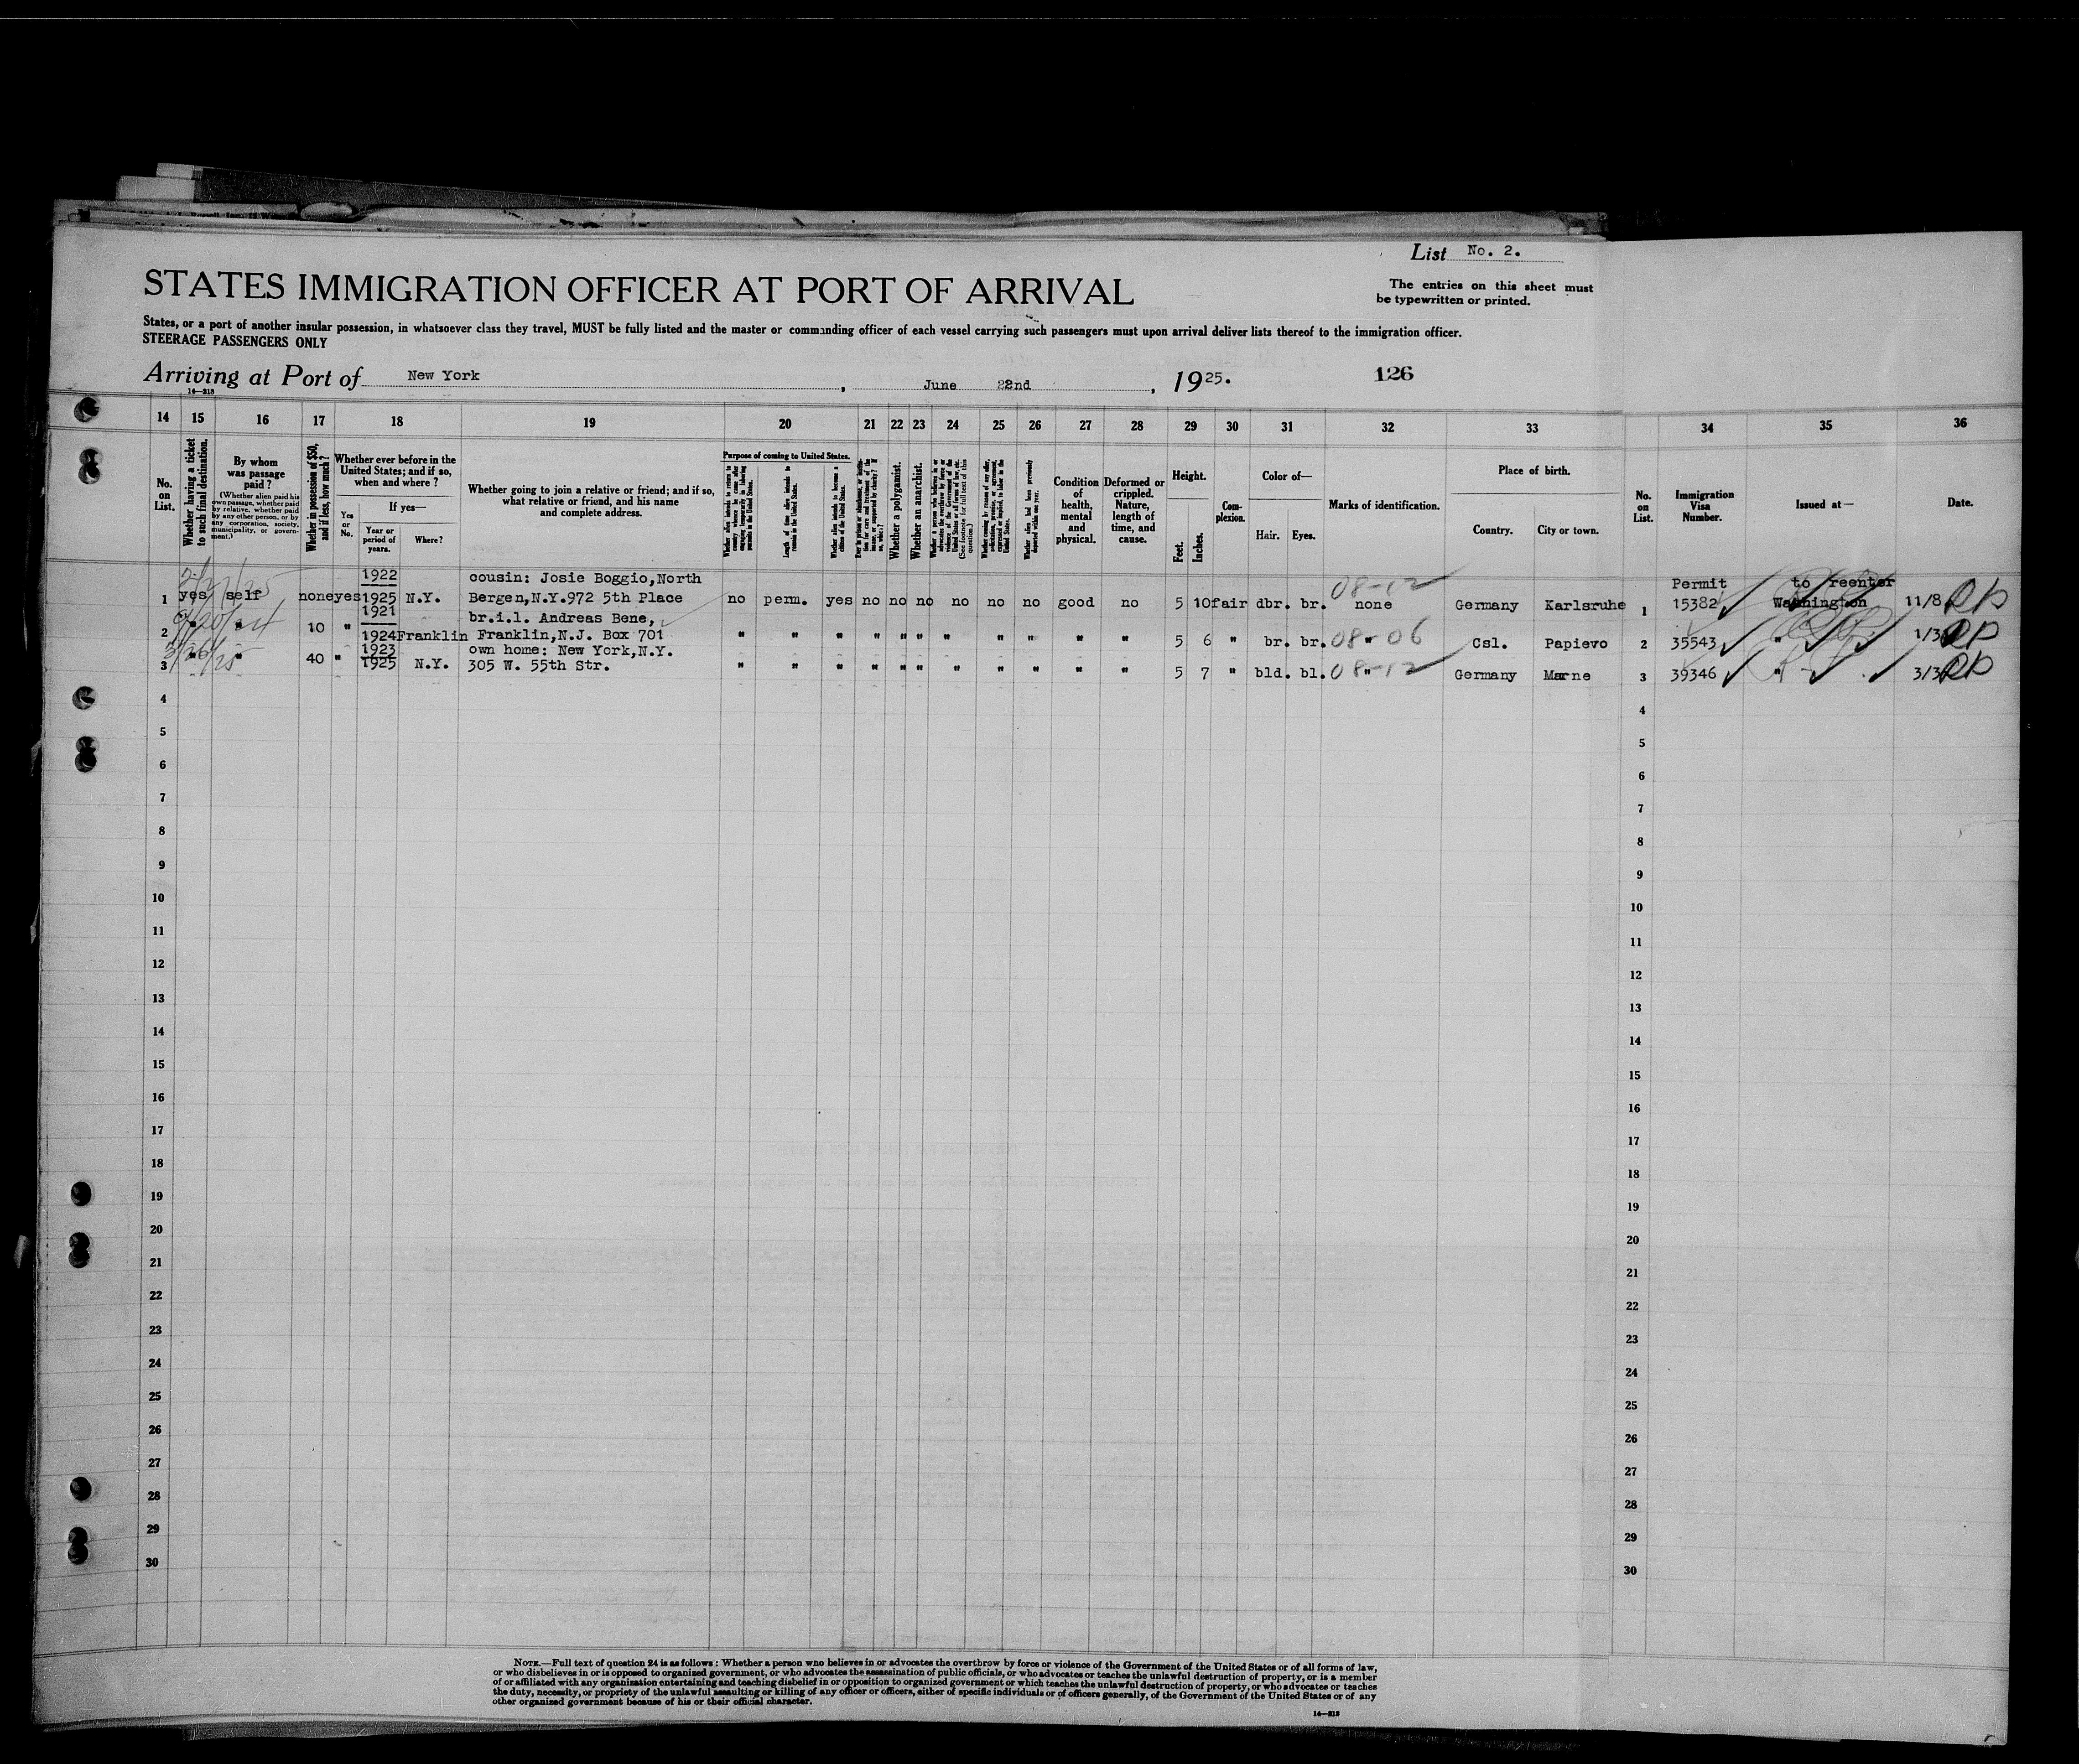 List No. 2.
STATES IMMIGRATION OFFICER AT PORT OF ARRIVAL
The entries on this sheet must
be typewritten or printed.
States, or a port of another insular possession, in whatsoever class they travel, MUST be fully listed and the master or commanding officer of each vessel carrying such passengers must upon arrival deliver lists thereof to the immigration officer.
STEERAGE PASSENGERS ONLY
Arriving at Port of New York, June 22nd, 1925. 126
14—313
14 15 16 17 18 19 20 21 22 23 24 25 26 27 28 29 30 31 32 33 34 35 36
No. on List.
Whether having a ticket to such final destination.
By whom was passage paid?
(Whether alien paid his own passage, whether paid by relative, whether paid by any other person, or by any corporation, society, municipality, or government.)
Whether in possession of $50, and if less, how much?
Whether ever before in the United States; and if so, when and where?
Yes or No.
If yes—
Year or period of years.
Where?
Whether going to join a relative or friend; and if so, what relative or friend, and his name and complete address.
Purpose of coming to United States.
Length of time alien intends to remain in the United States.
Whether alien intends to become a citizen of the United States.
Whether a polygamist.
Whether an anarchist.
(See footnote for full text of this question.)
Condition of health, mental and physical.
Deformed or crippled. Nature, length of time, and cause.
Height.
Feet. Inches.
Complexion.
Color of—
Hair. Eyes.
Marks of identification.
Place of birth.
Country. City or town.
No. on List.
Immigration Visa Number.
Issued at—
Date.
1922 cousin: Josie Boggio,North 08-12 Permit to reenter
1 yes self none yes 1925 N.Y. Bergen,N.Y.972 5th Place no perm. yes no no no no no no good no 5 10 fair dbr. br. none Germany Karlsruhe 1 15382 Washington 11/8
1921 br.i.l. Andreas Bene,
2 " " 10 " 1924 Franklin Franklin,N.J. Box 701 " " " " " " " " " " " 5 6 " br. br. 08-06 " Csl. Papievo 2 35543 " 1/3
1923 own home: New York,N.Y.
3 " " 40 " 1925 N.Y. 305 W. 55th Str. " " " " " " " " " " " 5 7 " bld. bl. 08-12 " Germany Marne 3 39346 " 3/3
4 4
5 5
6 6
7 7
8 8
9 9
10 10
11 11
12 12
13 13
14 14
15 15
16 16
17 17
18 18
19 19
20 20
21 21
22 22
23 23
24 24
25 25
26 26
27 27
28 28
29 29
30 30
NOTE.—Full text of question 24 is as follows: Whether a person who believes in or advocates the overthrow by force or violence of the Government of the United States or of all forms of law,
or who disbelieves in or is opposed to organized government, or who advocates the assassination of public officials, or who advocates or teaches the unlawful destruction of property, or is a member
of or affiliated with any organization entertaining and teaching disbelief in or opposition to organized government or which teaches the unlawful destruction of property, or who advocates or teaches
the duty, necessity, or propriety of the unlawful assaulting or killing of any officer or officers, either of specific individuals or of officers generally, of the Government of the United States or of any
other organized government because of his or their official character.
14—313